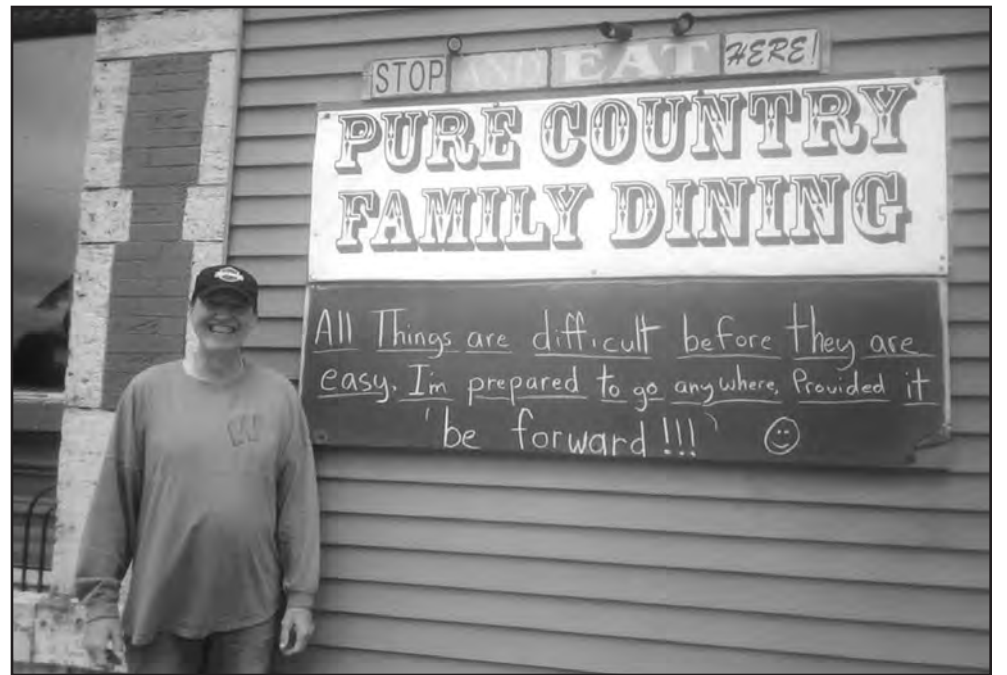 STOP AND EAT HERE!
PURE COUNTRY
FAMILY DINING
All Things are difficult before they are
easy. I'm prepared to go anywhere, Provided it
'be forward!!!'